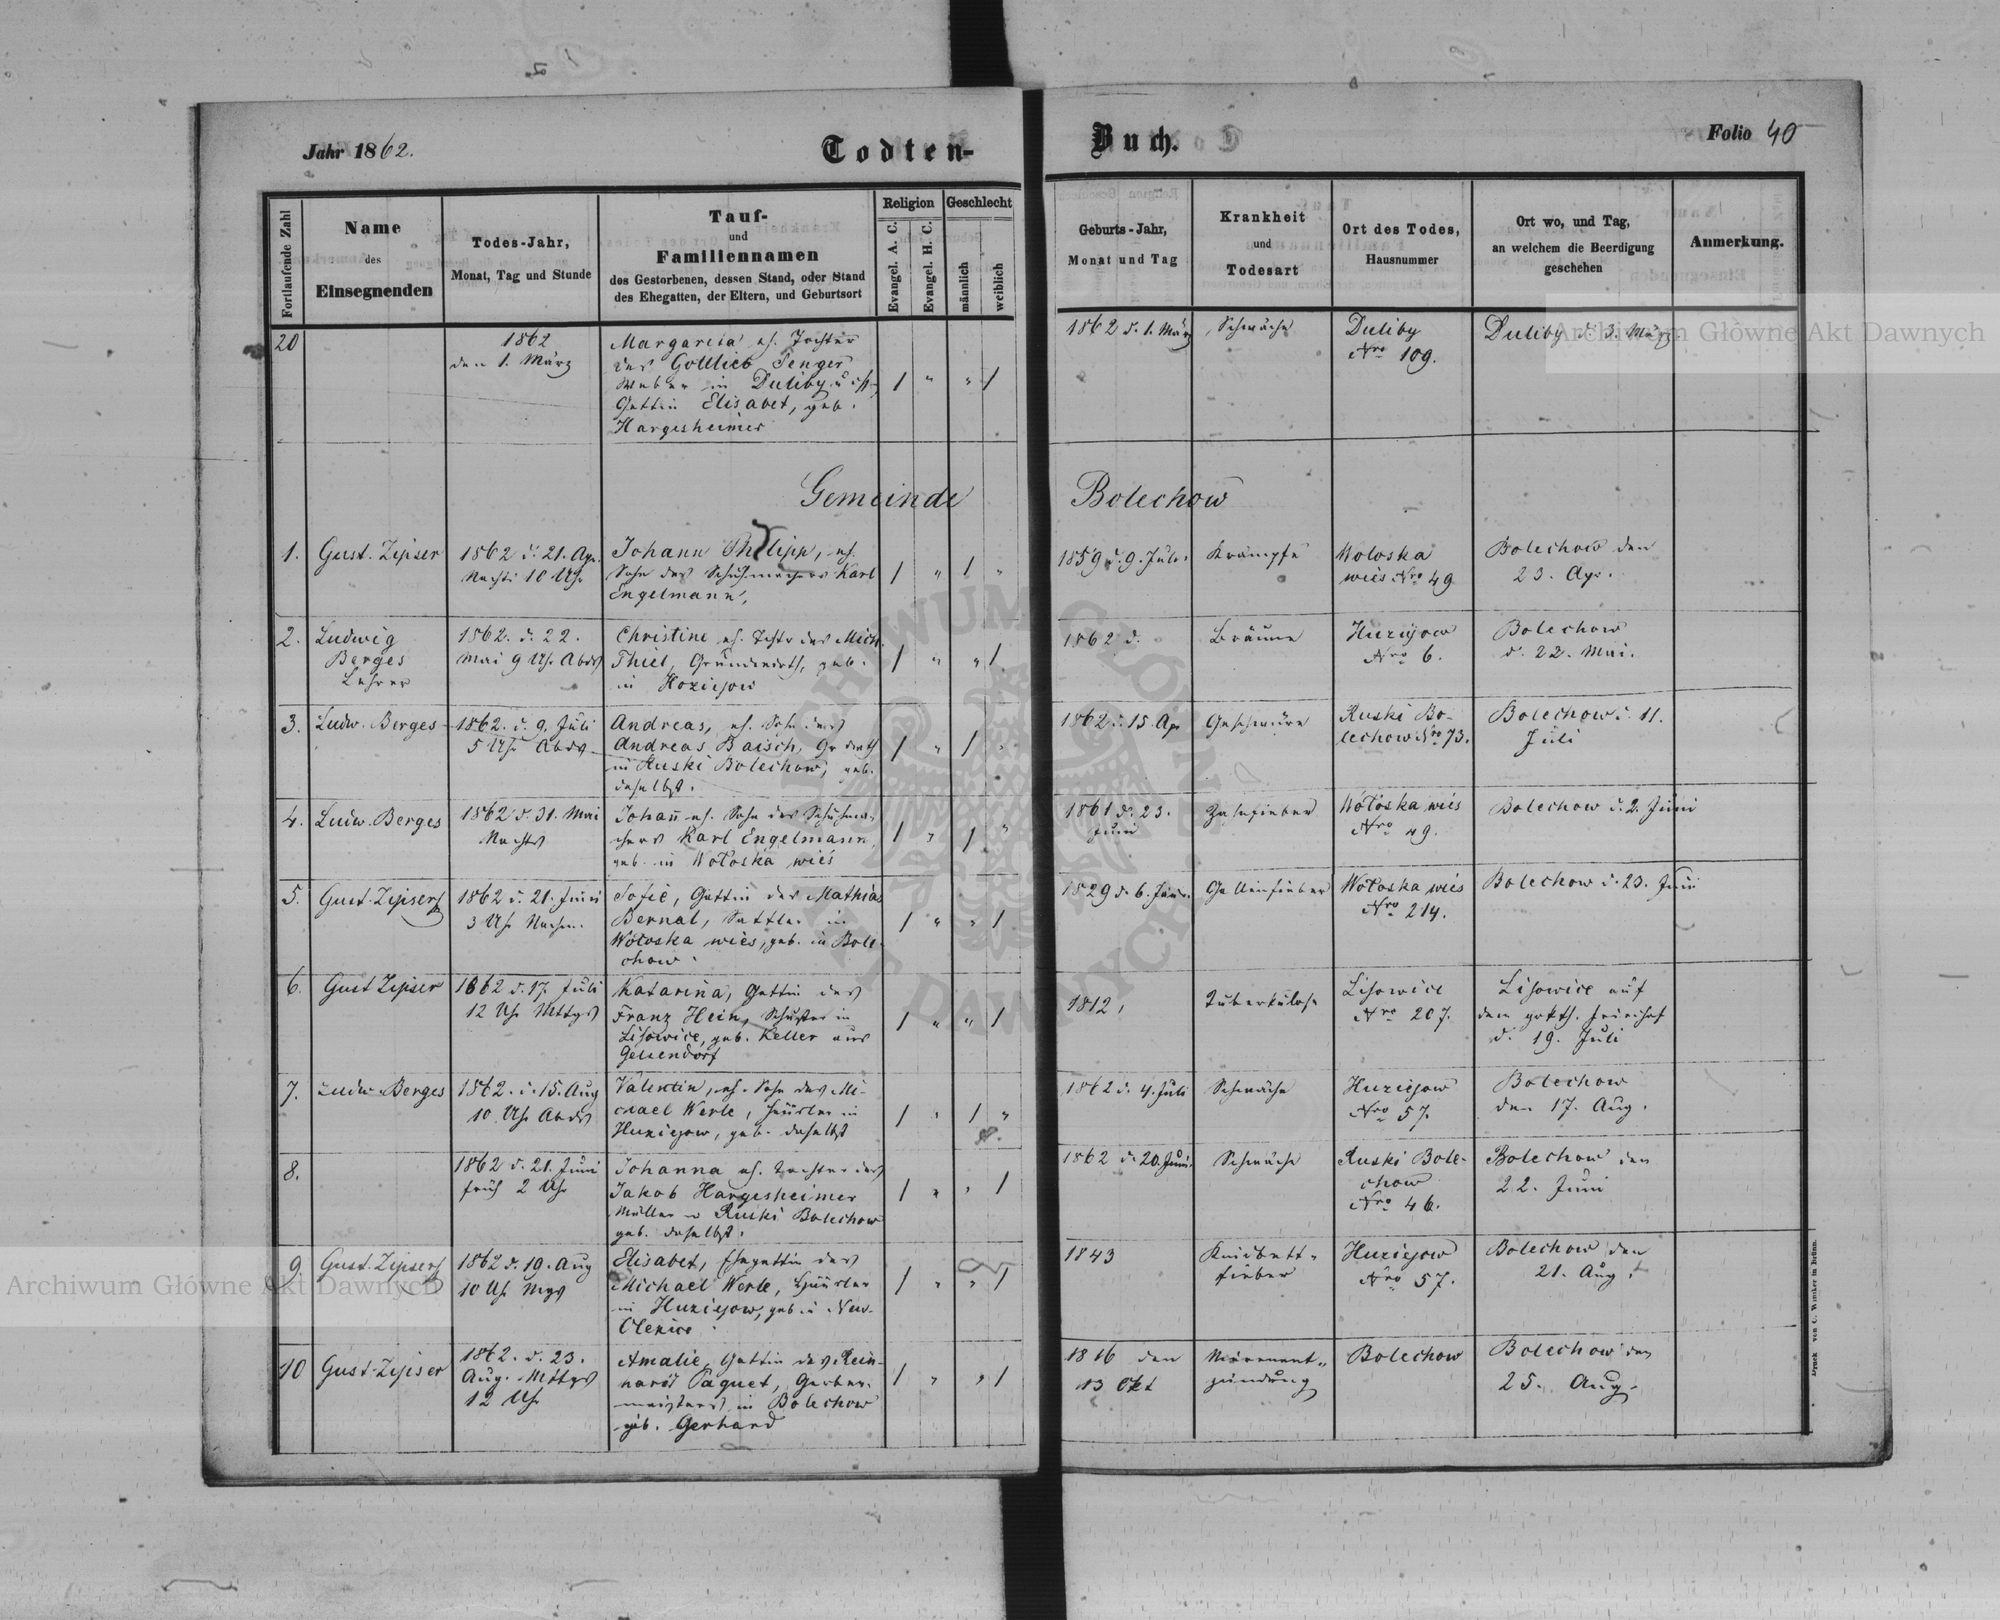 Jahr 1862.
Todten-
Buch.
Folio 40
Fortlaufende Zahl
Name
des
Einsegnenden
Todes-Jahr,
Monat, Tag und Stunde
Tauf-
und
Familiennamen
des Gestorbenen, dessen Stand, oder Stand
des Ehegatten, der Eltern, und Geburtsort
Religion
Evangel. A. C.
Evangel. H. C.
Geschlecht
männlich
weiblich
Geburts-Jahr,
Monat und Tag
Krankheit
und
Todesart
Ort des Todes,
Hausnummer
Ort wo, und Tag,
an welchem die Beerdigung
geschehen
Anmerkung.
20
1862
den 1. März
Margareta eh. Tochter
des Gottlieb Senger
Weber in Duliby u.
Gattin Elisabet, geb.
Hargesheimer
/ " " /
1862 d. 1. März
Schwäche
Duliby
Nro 109.
Duliby d. 3. März
Gemeinde Bolechow
1.
Gust. Zipser
1862 d. 21. Apr.
Nachts 10 Uhr
Johann Philipp, eh.
Sohn des Schuhmachers Karl
Engelmann,
/ " / "
1859 d. 9. Juli
Krämpfe
Woloska
wiés Nro 49
Bolechow den
23. Apr.
2.
Ludwig
Berges
Lehrer
1862. d. 22.
Mai 9 Uhr Abds
Christine eh. Tochtr des Mich.
Thiel, Grundwirth, geb.
in Hoziejow
/ " " /
1862 d.
Bräune
Huziejow
Nro 6.
Bolechow
d. 22. Mai.
3.
Ludw. Berges
1862. d. 9. Juli
5 Uhr Abds
Andreas, eh. Sohn des
Andreas Baisch, Gr wirth
in Ruski Bolechow, geb.
daselbst.
/ " / "
1862 d. 15. Ap
Geschwüre
Ruski Bo-
lechow Nro 73.
Bolechow d. 11.
Juli
4.
Ludw. Berges
1862 d. 31. Mai
Nachts
Johann eh. Sohn des Schuhma-
chers Karl Engelmann,
geb. in Wołoska wiés
/ " / "
1861 d. 23.
Juni
Zahnfieber
Wołoska wiés
Nro 49.
Bolechow d. 2. Juni
5.
Gust. Zipser
1862 d. 21. Juni
3 Uhr Nachm.
Sofie, Gattin des Mathias
Bernal, Sattler in
Wołoska wiés, geb. in Bole-
chow.
/ " " /
1829 d. 6. Jän.
Gallenfieber
Wołoska wiés
Nro 214.
Bolechow d. 23. Juni
6.
Gust Zipser
1862 d. 17. Juli
12 Uhr Mittgs
Katarina, Gattin des
Franz Hein, Schuster in
Lisowice, geb. Keller aus
Gelsendorf
/ " " /
1812,
Tuberkulose
Lisowice
Nro 207.
Lisowice auf
dem Friedhof
d. 19. Juli
7.
Ludw Berges
1862. d. 15. Aug
10 Uhr Abds
Valentin, eh. Sohn des Mi-
chael Werle, Häusler in
Huziejow, geb. daselbst
/ " / "
1862 d. 4. Juli
Schwäche
Huziejow
Nro 57.
Bolechow
den 17. Aug.
8.
1862 d. 21. Juni
früh 2 Uhr
Johanna eh. Tochter des
Jakob Hargesheimer
Müller in Ruski Bolechow
geb. daselbst.
/ " " /
1862 d. 20. Juni.
Schwäche
Ruski Bole-
chow
Nro 46.
Bolechow den
22. Juni
9
Gust. Zipser
1862 d. 19. Aug
10 Uhr Mrgs
Elisabet, Ehegattin des
Michael Werle, Häusler
in Huziejow, geb. in Neu-
Olexice.
/ " " /
1843
Kindbett-
fieber
Huziejow
Nro 57.
Bolechow den
21. Aug.
10
Gust. Zipser
1862. d. 23.
Aug. Mittgs
12 Uhr
Amalie, Gattin des Rein-
hard Paquet, Gerber-
meisters in Bolechow
geb. Gerhard
/ " " /
1816 den
13 Okt
Nierenent-
zündung
Bolechow
Bolechow den
25. Aug.
Druck von C. Winiker in Brünn.
Archiwum Główne Akt Dawnych
Archiwum Główne Akt Dawnych
ARCHIWUM GŁÓWNE AKT DAWNYCH